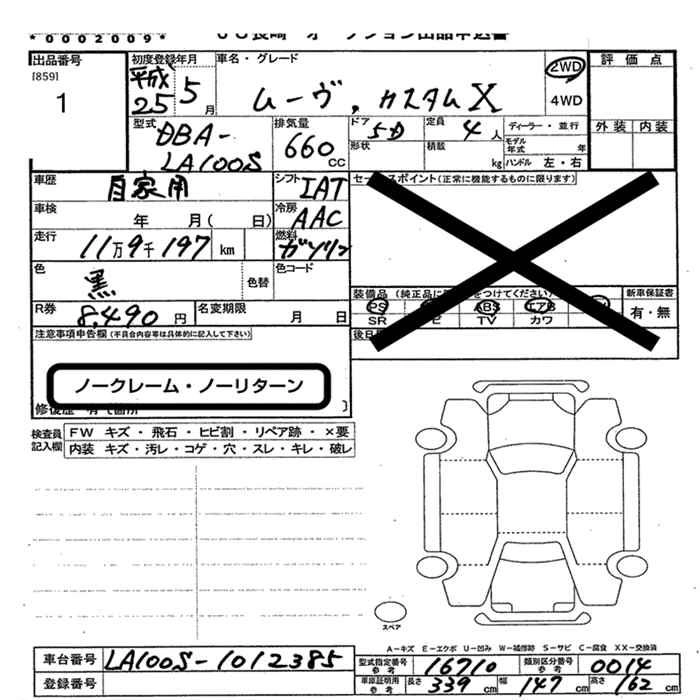 *0002009*
長崎 オークション出品申込書
出品番号
[859]
1
初度登録年月
平成
25 5 月
車名・グレード
ムーヴ, カスタム X
2WD
4WD
評価点
外装 内装
型式
DBA-
LA100S
排気量
660 CC
ドア
5D
形状
定員
4 人
積載
kg
ディーラー・並行
モデル
年式 年
ハンドル 左・右
車歴
自家用
シフト
IAT
車検
年 月( 日)
冷房
AAC
走行
11万9千197 km
燃料
ガソリン
色
黒
色替
色コード
R券
8,490 円
名変期限
月 日
セールスポイント(正常に機能するものに限ります)
装備品
PS
ABS
エアB
SR
TV
カワ
新車保証書
有・無
注意事項申告欄(不具合内容等は具体的に記入して下さい)
ノークレーム・ノーリターン
検査員
記入欄
FW キズ・飛石・ヒビ割・リペア跡・×要
内装 キズ・汚レ・コゲ・穴・スレ・キレ・破レ
スペア
A-キズ E-エクボ U-凹み W-補修跡 S-サビ C-腐食 XX-交換済
車台番号
LA100S-1012385
登録番号
型式指定番号
参考
16710
類別区分番号
参考
0014
車庫証明用
参考
長さ 339 cm
幅 147 cm
高さ 162 cm